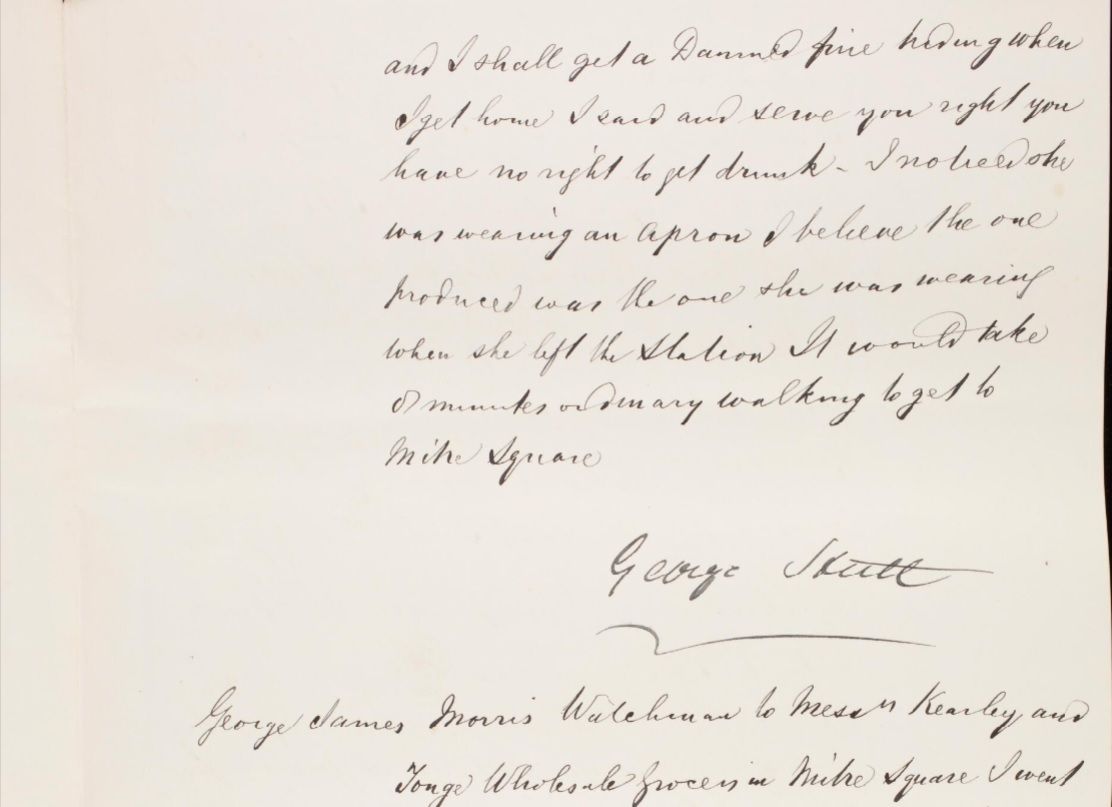 and I shall get a Damned fine hiding when
I get home I said and serve you right you
have no right to get drunk - I noticed she
was wearing an apron I believe the one
produced was the one she was wearing
when she left the Station It would take
8 minutes ordinary walking to get to
Mitre Square
George Hutt
George James Morris Watchman to Messrs Kearley and
Tonge Wholesale Grocers in Mitre Square I went